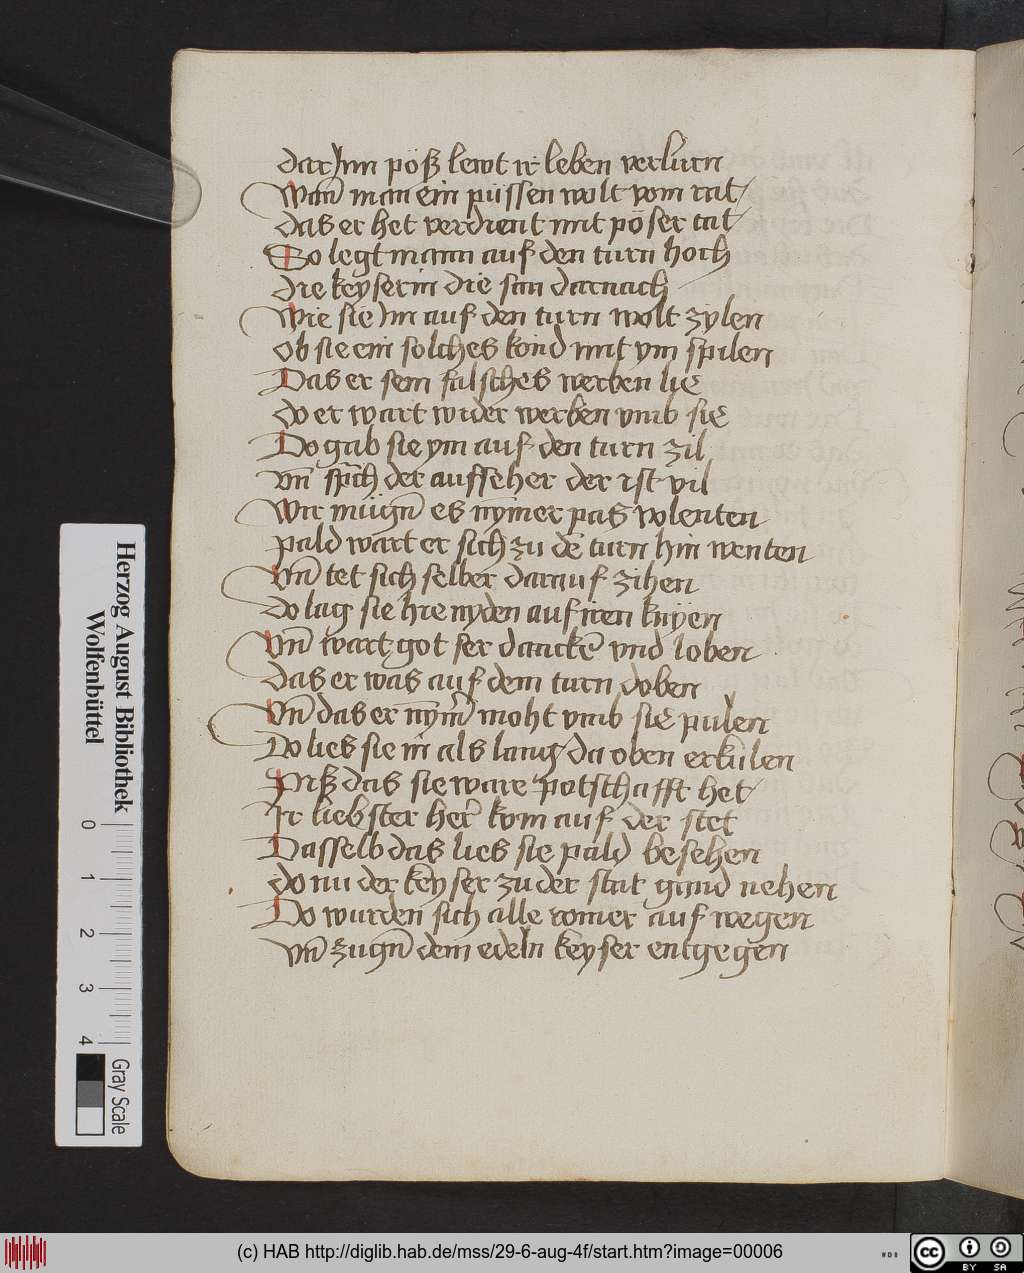 dar Jnn pöß lewt ir leben verlurn
Wann̄ man ein püssen wolt vom rat
das er het verdient mit pöser tat
So legt mann auf den turn hoch
die keyserin die san darnach
Wie sie Jm auf den turn wolt zylen
ob sie ein solches kond mit ym spilen
Das er sein falsches werben lie
do er wart wider werben vmb sie
Do gab sie ym auf den turn zil
vn̄ sp̄ch der aufseher der ist vil
Wir mügn̄ es nymer pas volenten
pald wart er sich zu dē turn hin wenten
Vn̄ tet sich selber darauf zihen
do lag sie hie nyden auf iren knyen
Vn̄ wart got ser danckē vnd loben
das er was auf dem turn doben
Vn̄ das er nym̄ moht vmb sie pulen
Do lies sie in als lang da oben erkulen
Piß das sie ware potschafft het
Ir liebster her̄ kom auf der stet
Dasselb das lies sie pald besehen
do nu der keyser zu der stat gund nehen
Do wurden sich alle romer auf wegen
vn̄ zugn̄ dem edeln keyser entgegen
Herzog August Bibliothek
Wolfenbüttel
0 1 2 3 4
Gray Scale
(c) HAB http://diglib.hab.de/mss/29-6-aug-4f/start.htm?image=00006
cc BY SA